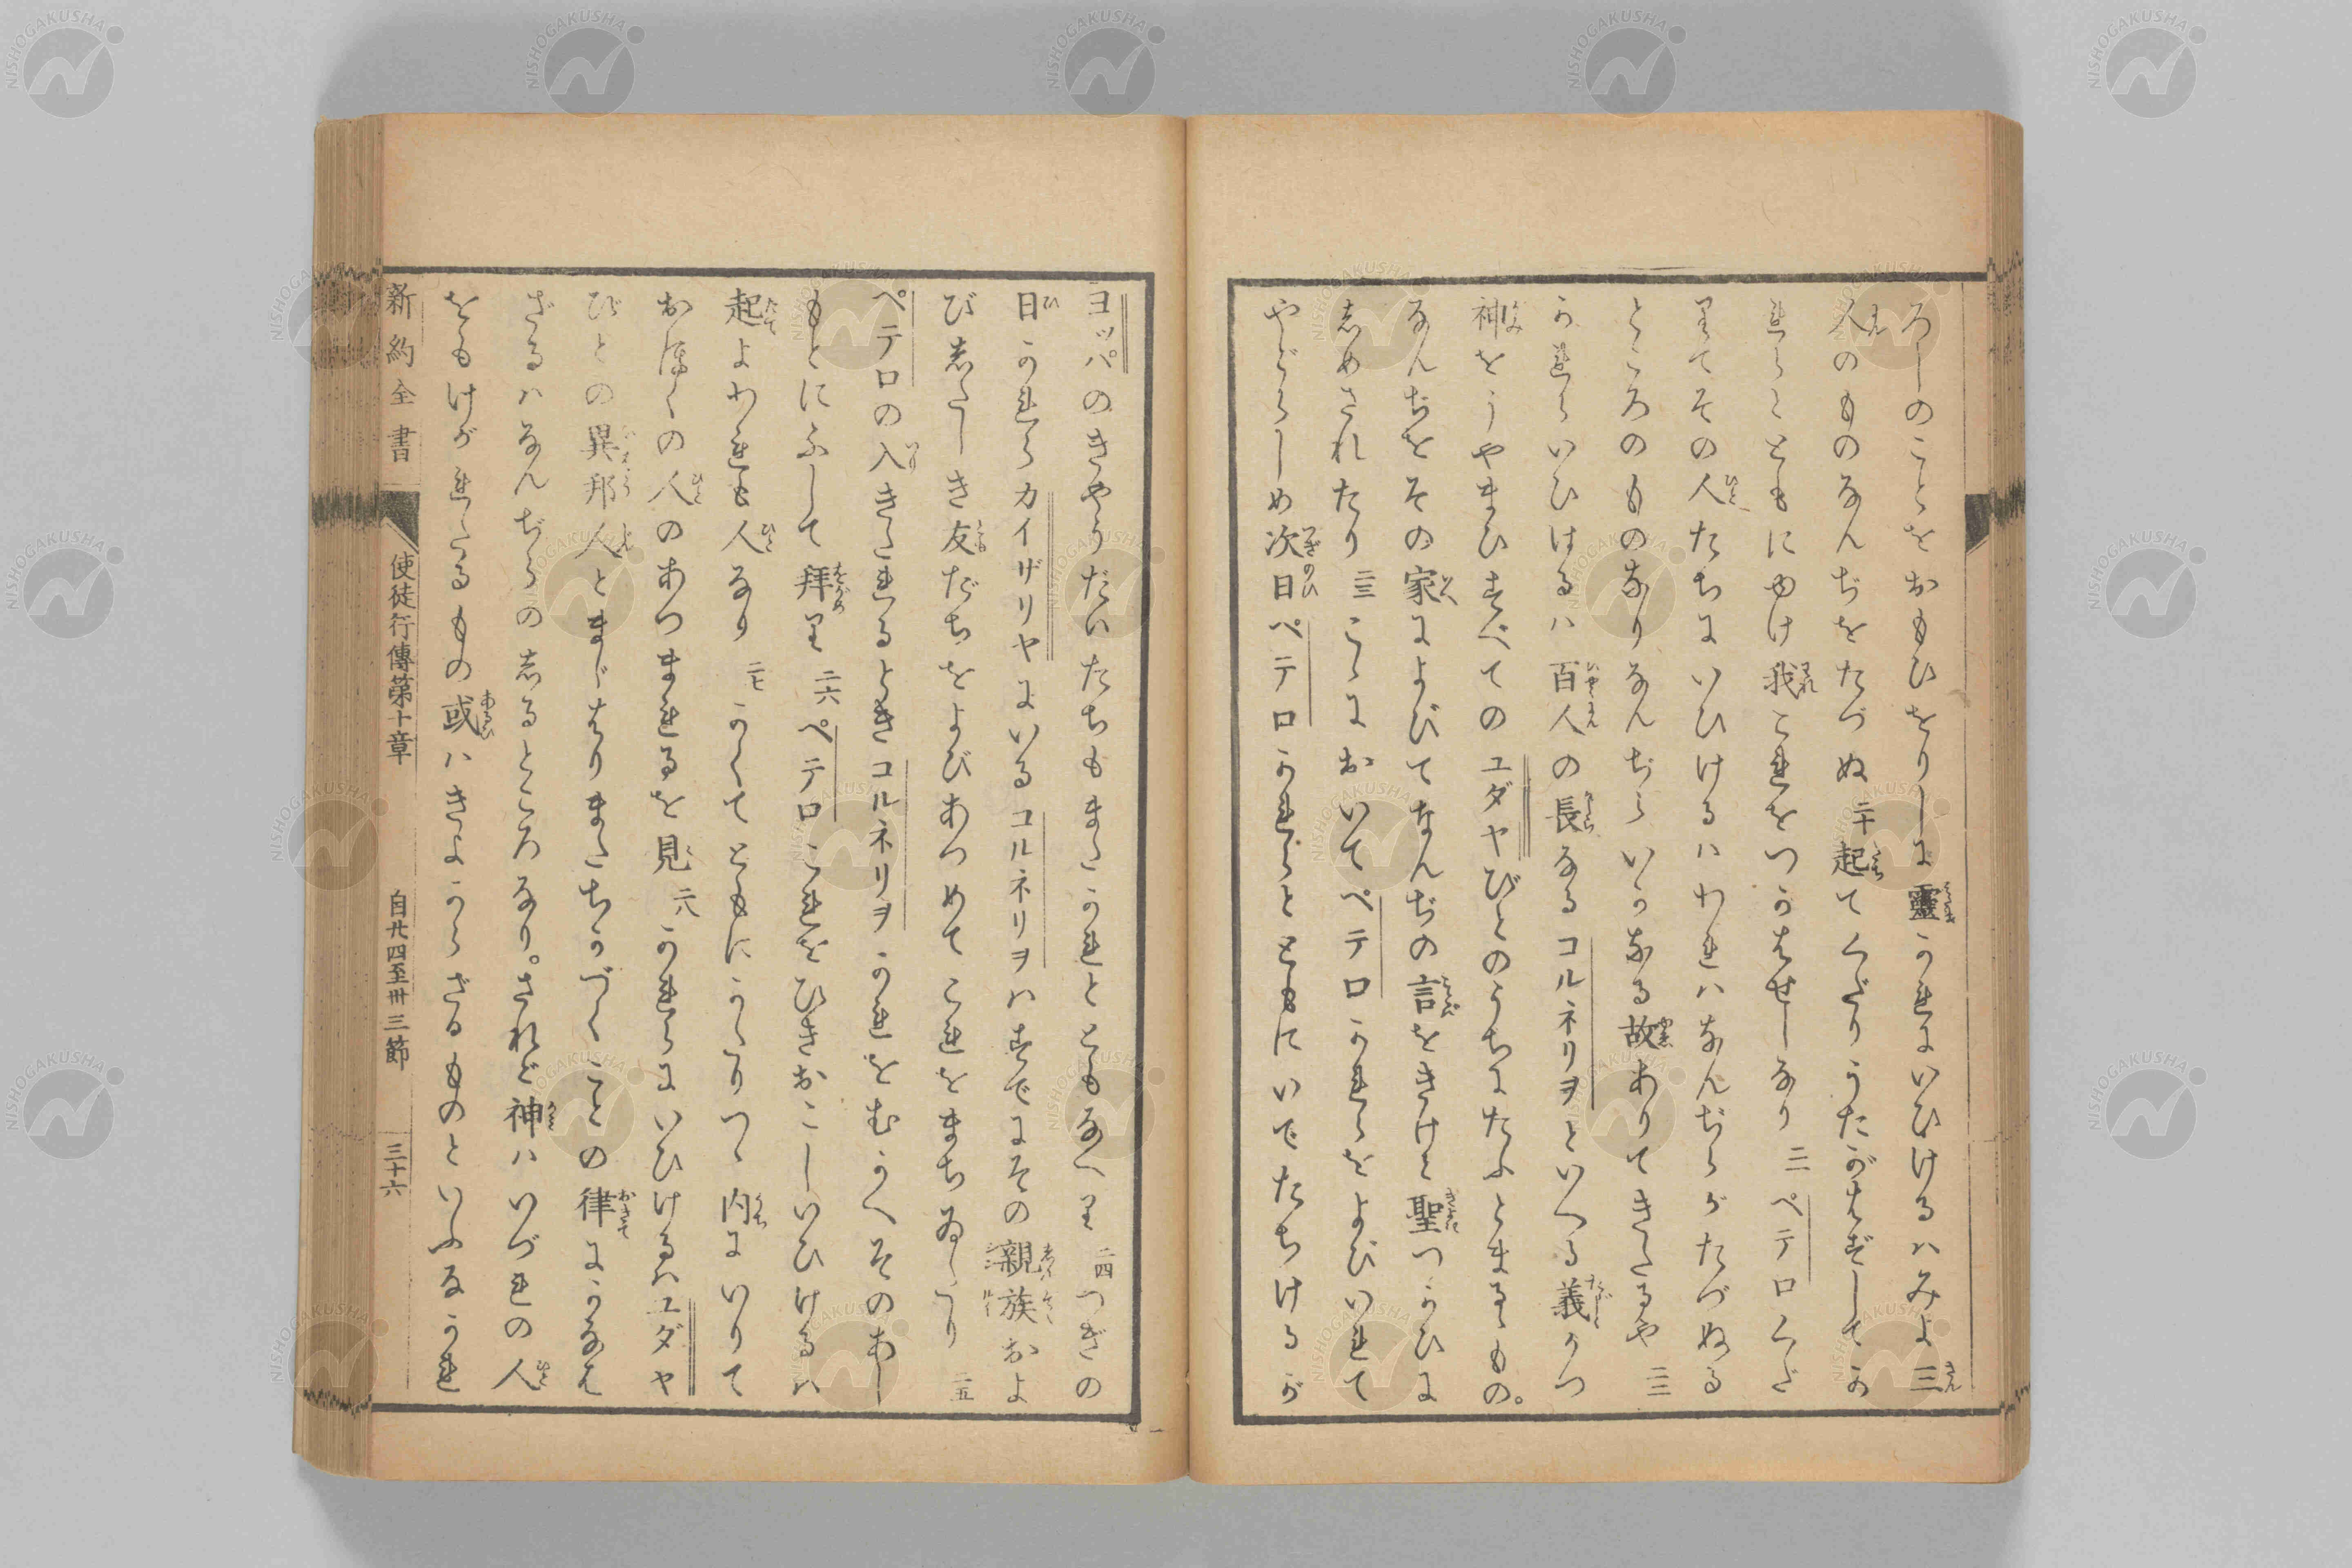 ろしのことをおもひをりしに靈かれにいひけるハみよ三
人のものなんぢをたづぬ二十起てくだりうたがはずしてか
れらとともにゆけ我これをつかはせしなり二一ペテロくだ
りてその人たちにいひけるハわれハなんぢらがたづぬる
ところのものなりなんぢらいかなる故ありてきたるや二二
かれらいひけるハ百人の長なるコルネリヲといへる義かつ
神をうやまひすべてのユダヤびとのうちにたふとまるゝもの。
なんぢをその家によびてなんぢの言をきけと聖つかひに
しめされたり二三こゝにおいてペテロかれらをよびいれて
やどらしめ次日ペテロかれらとともにいでたちけるが
ヨッパのきやうだいたちもまたかれとともなへり二四つぎの
日かれらカイザリヤにいるコルネリヲハすでにその親族およ
びしたしき友だちをよびあつめてこれをまちゐたり二五
ペテロの入きたれるときコルネリヲかれをむかへそのあし
もとにふして拜り二六ペテロこれをひきおこしいひけるハ
起よわれも人なり二七かくてともにかたりつゝ内にいりて
おほくの人のあつまれるを見二八かれらにいひけるハユダヤ
びとの異邦人とまじはりまたちかづくことの律にかなは
ざるハなんぢらのしるところなり。されど神ハいづれの人
をもけがれたるもの或ハきよからざるものといふなかれ
新約全書 使徒行傳第十章 自廿四至卅三節 三十六
NISHOGAKUSHA